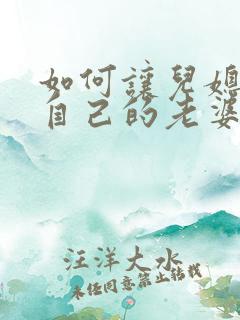 如何讓兒媳
自己的老婆
汪洋大水
未经同意禁止转载